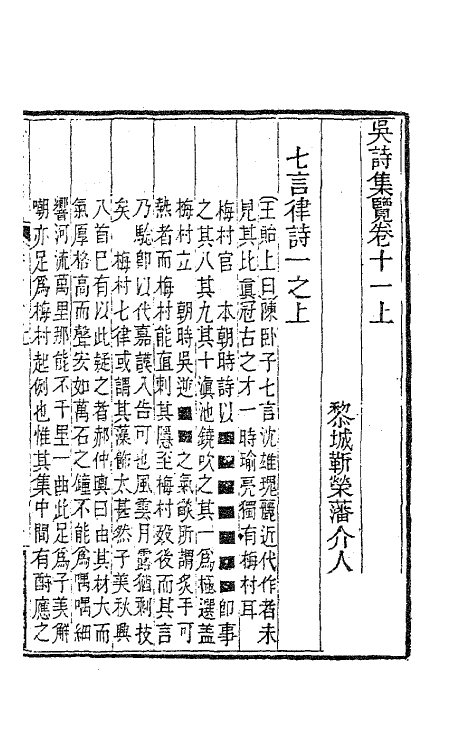 吳詩集覽卷十一上
黎城靳榮藩介人
七言律詩一之上
王貽上曰陳臥子七言沈雄瑰麗近代作者未
見其比眞冠古之才一時瑜亮獨有梅村耳
梅村官 本朝時詩以■■■■■■■卽事
之其八其九其十滇池鐃吹之其一爲極選蓋
梅村立 朝時吳逆■■之氣燄所謂炙手可
熱者而梅村能直刺其隱至梅村歿後而其言
乃驗卽以代嘉謨入告可也風雲月露猶剩技
矣 梅村七律或謂其藻飾太甚然子美秋興
八首已有以此疑之者郝仲輿曰由其材大而
氣厚格高而聲宏如萬石之鐘不能爲喁喁細
響河流萬里那能不千里一曲此足爲子美解
嘲亦足爲梅村起例也惟其集中間有酬應之